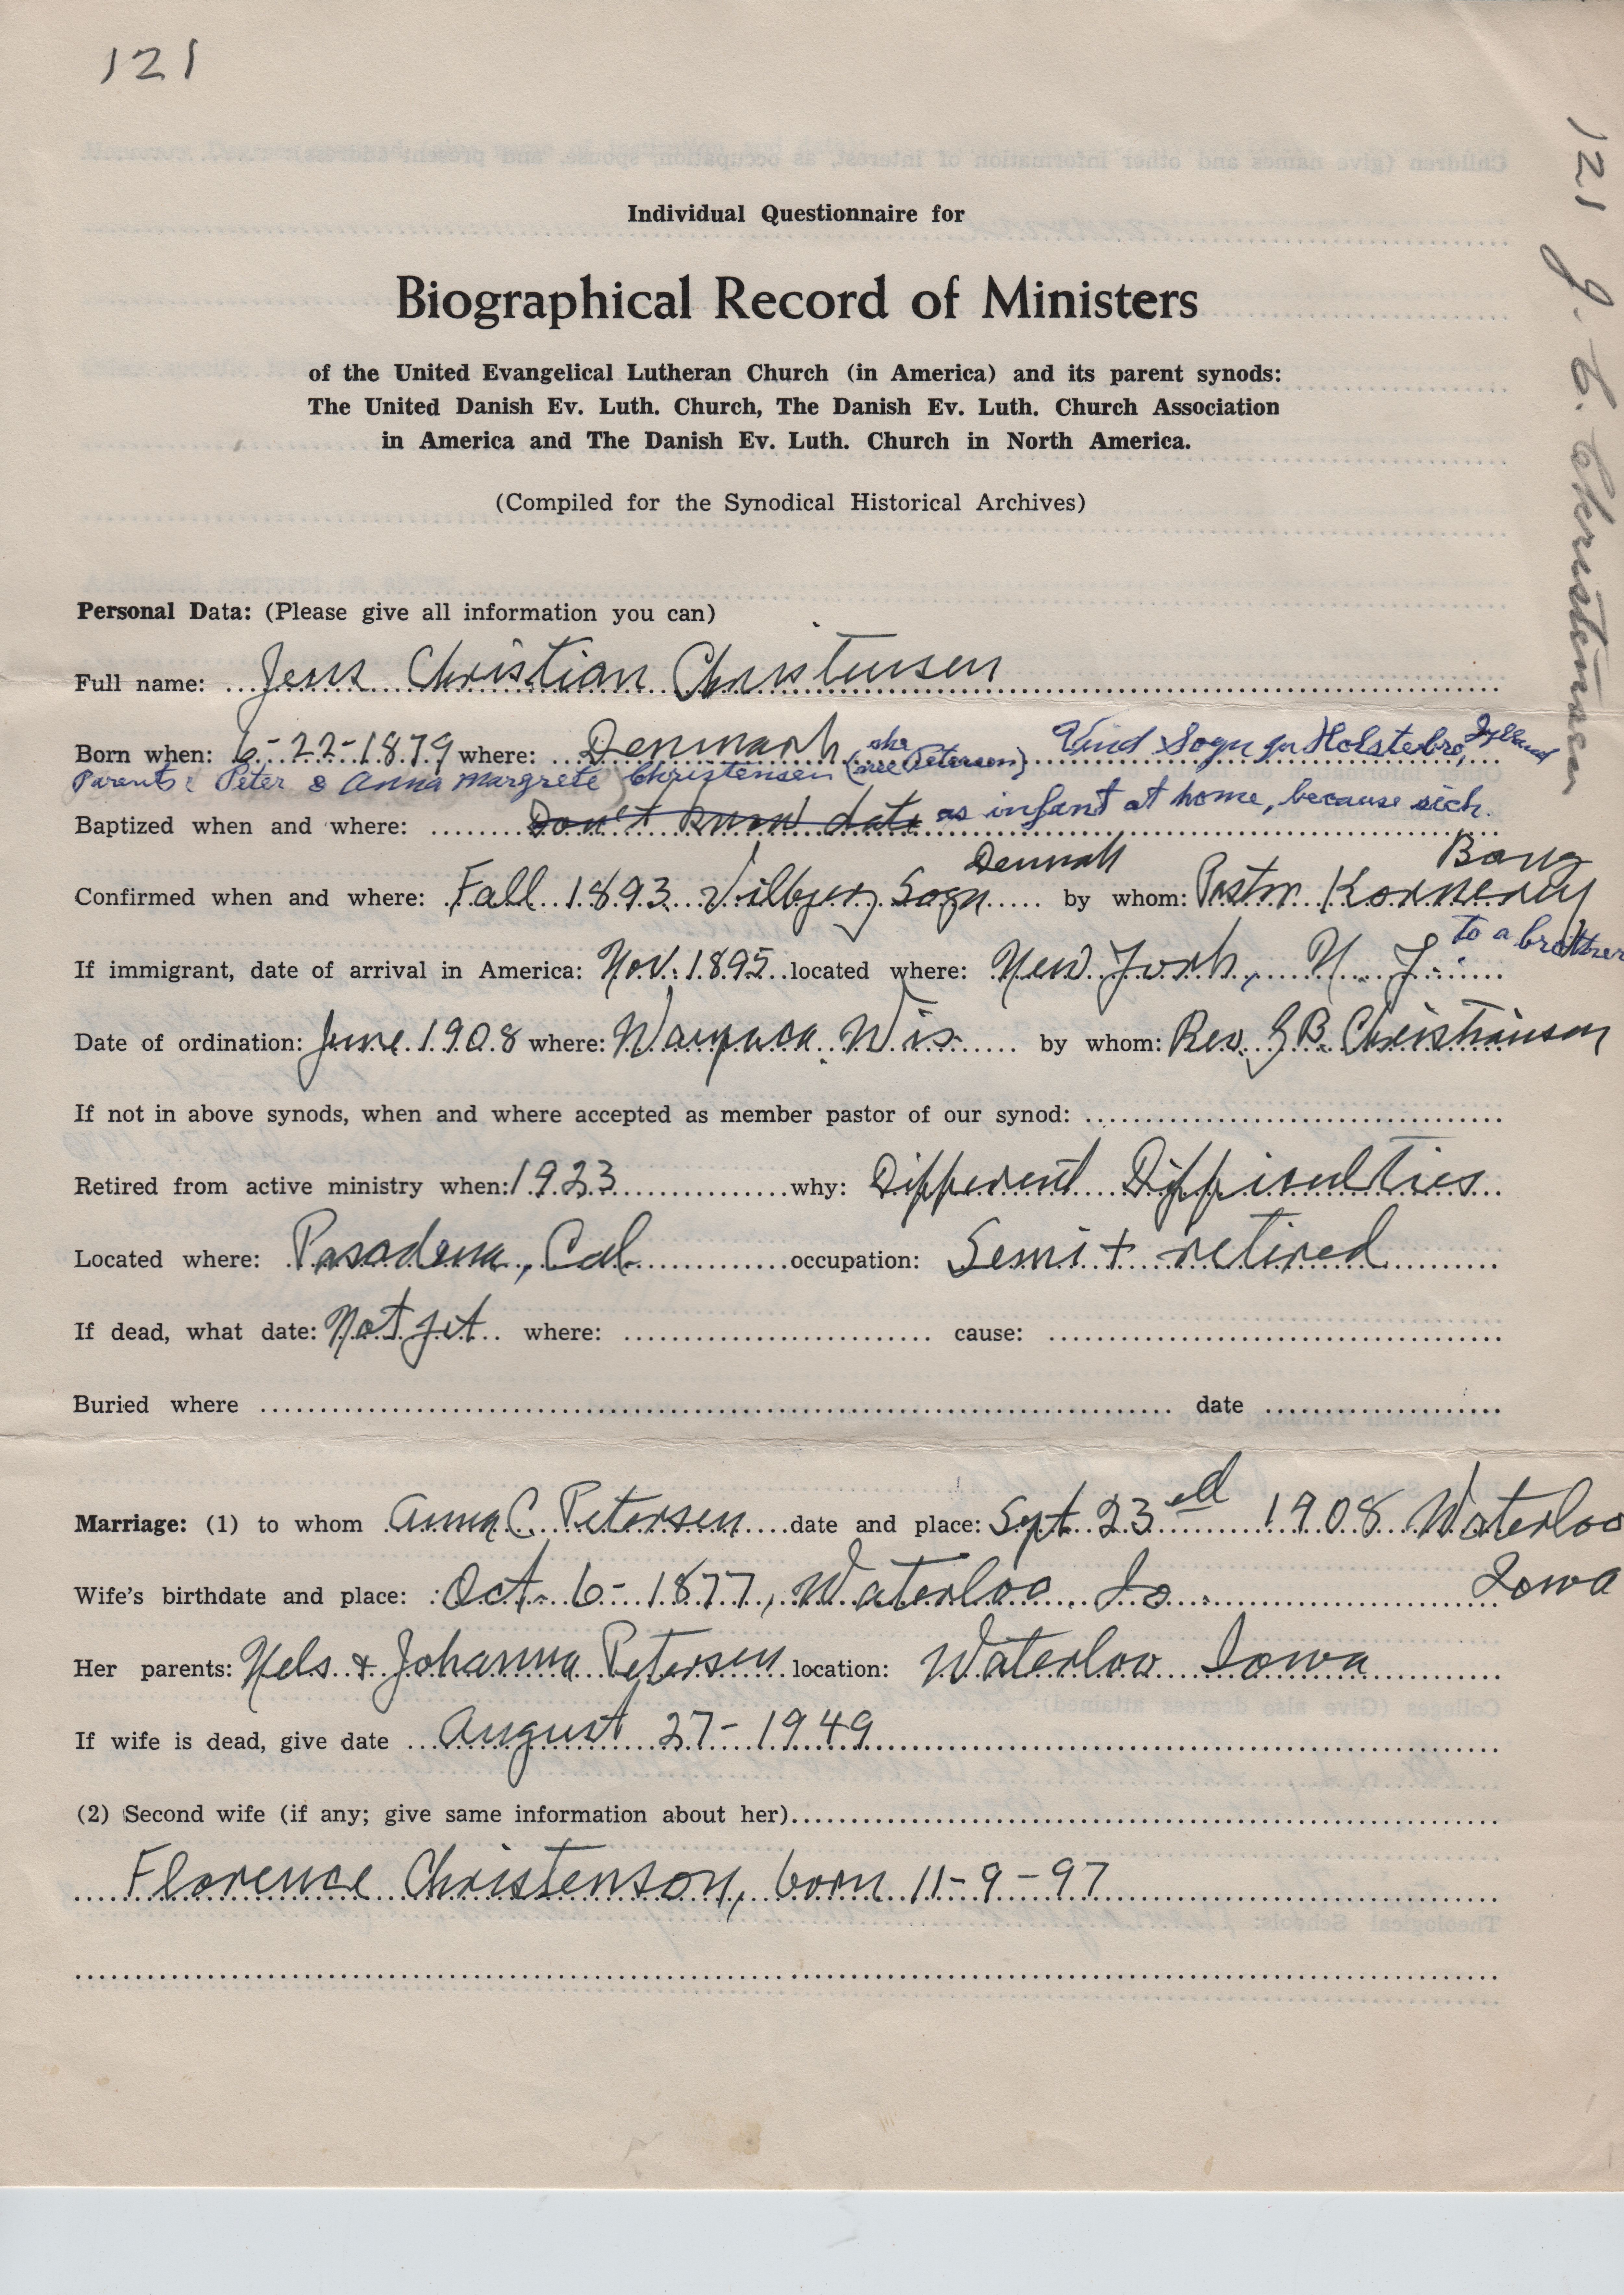 121
121 J. C. Christensen
Individual Questionnaire for
Biographical Record of Ministers
of the United Evangelical Lutheran Church (in America) and its parent synods:
The United Danish Ev. Luth. Church, The Danish Ev. Luth. Church Association
in America and The Danish Ev. Luth. Church in North America.
(Compiled for the Synodical Historical Archives)
Personal Data: (Please give all information you can)
Full name: Jens Christian Christensen
Born when: 6-22-1879 where: Denmark (she née Petersen) Vind Sogn Holstebro, Jylland
Parents: Peter & Anna Margrete Christensen
Baptized when and where: Don't know date as infant at home, because sick.
Confirmed when and where: Fall 1893 Vilbjerg Sogn Denmark by whom: Pastor Bang
If immigrant, date of arrival in America: Nov. 1895 located where: New York, N. Y. to a brother
Date of ordination: June 1908 where: Waupaca Wis. by whom: Rev. G B Christiansen
If not in above synods, when and where accepted as member pastor of our synod:
Retired from active ministry when: 1923 why: Different Difficulties
Located where: Pasadena, Cal. occupation: Semi + retired
If dead, what date: Not yet where: cause:
Buried where date
Marriage: (1) to whom Anna C. Petersen date and place: Sept. 23ed 1908 Waterloo
Iowa
Wife's birthdate and place: Oct. 6-1877, Waterloo, Io.
Her parents: Nels & Johanna Petersen location: Waterloo Iowa
If wife is dead, give date August 27-1949
(2) Second wife (if any; give same information about her)
Florence Christenson, born 11-9-97